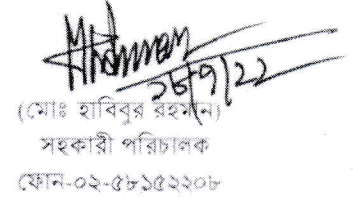 ২৮/৭/২২
(মোঃ হাবিবুর রহমান)
সহকারী পরিচালক
ফোন-০২-৫৮১৫২২০৮